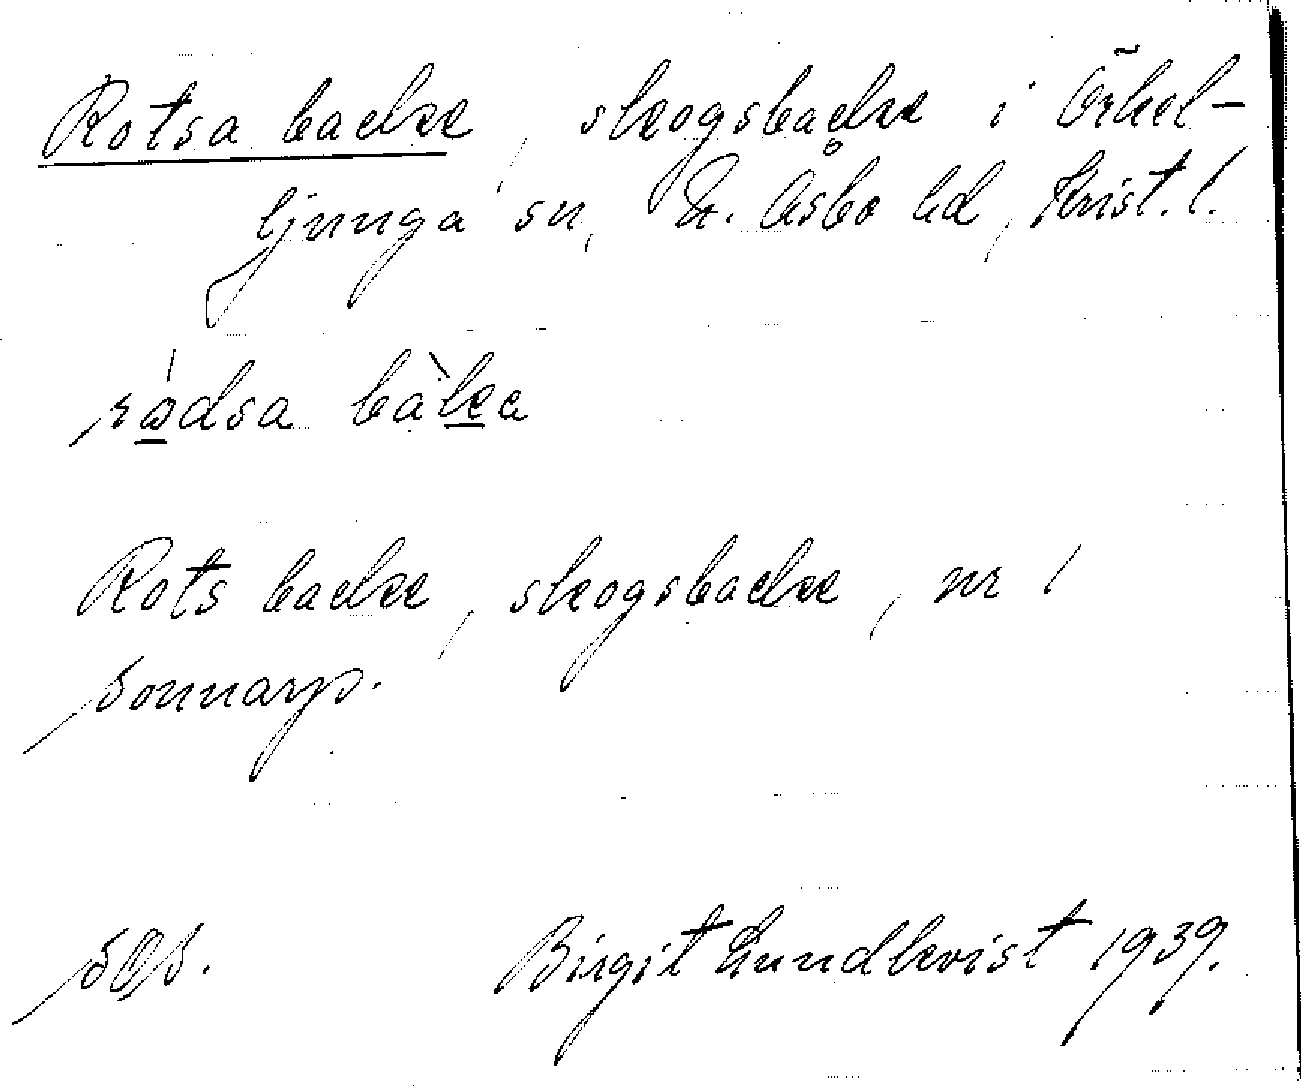 Rotsa backe, skogsbacke i Örkel-
ljunga sn, N. Åsbo hd, Krist. l.
rådsa bàka
Rots backe, skogsbacke, nr 1
Sonnarp.
SOS. Birgit Lundkvist 1939.